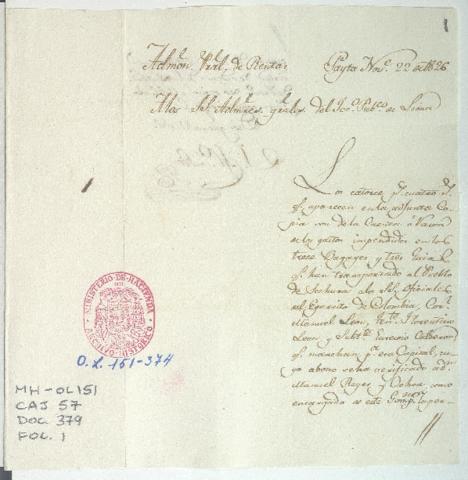 1
Admōn. Prāl. de Rentas Payta Nov.e 22 de 1826
A los SS. Admores. grales. del Tes.o Pub.co de Lima
Los catorce p.s cuatro r.s
q.e aparecen en la adjunta Co-
pia son de la Cuenta
de los gastos impendidos en los
trece Bagages y tres Guias
q.e han transportado al Pueblo
de Sechura a los SS. Oficiales
del Egercito de Colombia, Cor.l
Manuel Leon, Ten.te Florentino
Leon y Subt.e
q.e marchan p.a esa Capital, cu-
yo abono se ha verificado a d.n
Manuel Reyes y Ochoa como
encargado
MINISTERIO-DE-HACIENDA
ARCHIVO-HISTORICO
O.L. 151-374
MH-OL151
CAJ 57
DOC. 379
FOL. 1